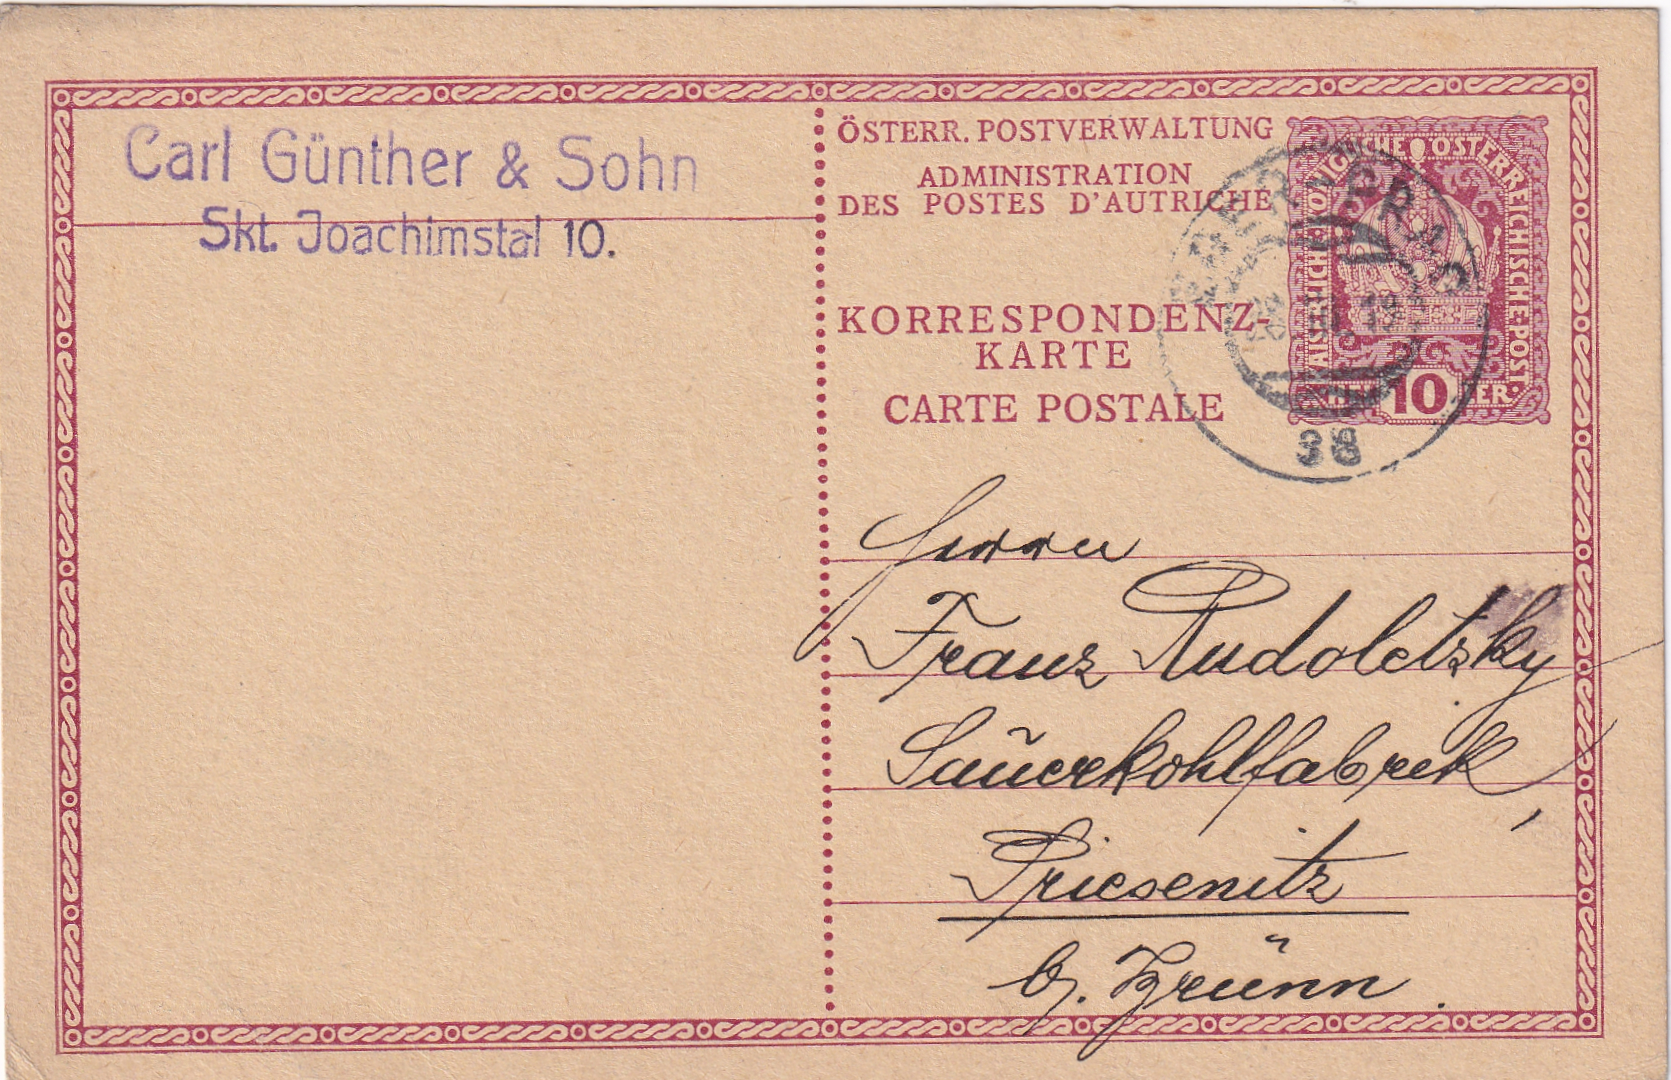 Carl Günther & Sohn
Skt. Joachimstal 10.
ÖSTERR. POSTVERWALTUNG
ADMINISTRATION
DES POSTES D'AUTRICHE
KORRESPONDENZ-
KARTE
CARTE POSTALE
KAISERLICHE KÖNIGLICHE ÖSTERREICHISCHE POST
10
38
Herrn
Franz Rudoletzky
Sauerkohlfabrik,
Priesenitz
b. Brünn.